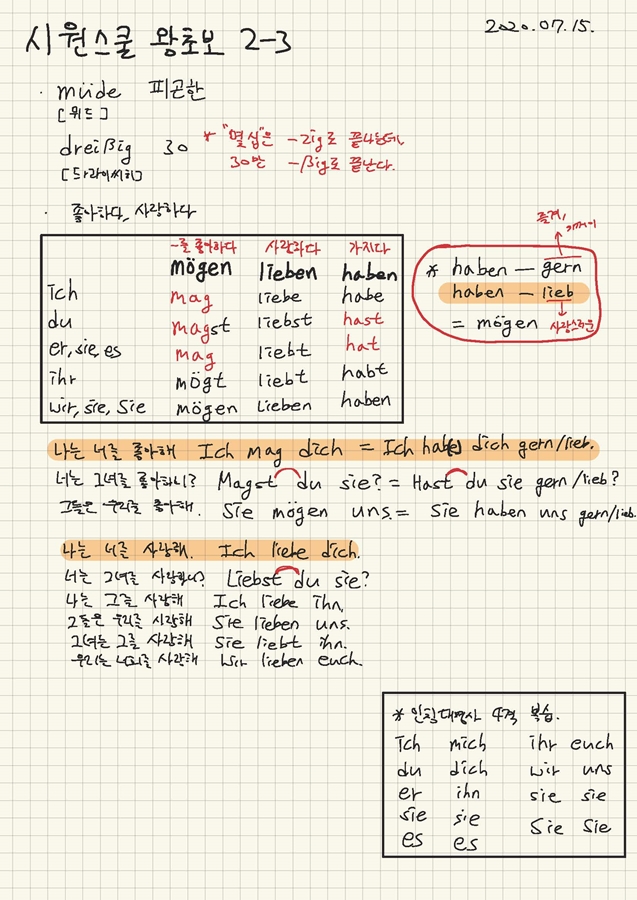 2020.07.15.
시원스쿨 왕초보 2-3
· müde 피곤한
[뮈드]
dreißig 30
[드라이씨히]
* "몇십"은 -zig로 끝나는데,
30만 -ßig로 끝난다.
· 좋아하다, 사랑하다
~를 좋아하다 사랑하다 가지다
mögen lieben haben
ich mag liebe habe
du magst liebst hast
er, sie, es mag liebt hat
ihr mögt liebt habt
wir, sie, Sie mögen lieben haben
즐겨, 기꺼이
* haben - gern
haben - lieb
= mögen 사랑스러운
나는 너를 좋아해 Ich mag dich = Ich habe dich gern/lieb.
너는 그녀를 좋아하니? Magst du sie? = Hast du sie gern/lieb?
그들은 우리를 좋아해. Sie mögen uns. = Sie haben uns gern/lieb.
나는 너를 사랑해. Ich liebe dich.
너는 그녀를 사랑하니? Liebst du sie?
나는 그를 사랑해 Ich liebe ihn.
그들은 우리를 사랑해 Sie lieben uns.
그녀는 그를 사랑해 Sie liebt ihn.
우리는 너희를 사랑해 Wir lieben euch.
* 인칭대명사 4격 복습.
ich mich ihr euch
du dich wir uns
er ihn sie sie
sie sie Sie Sie
es es